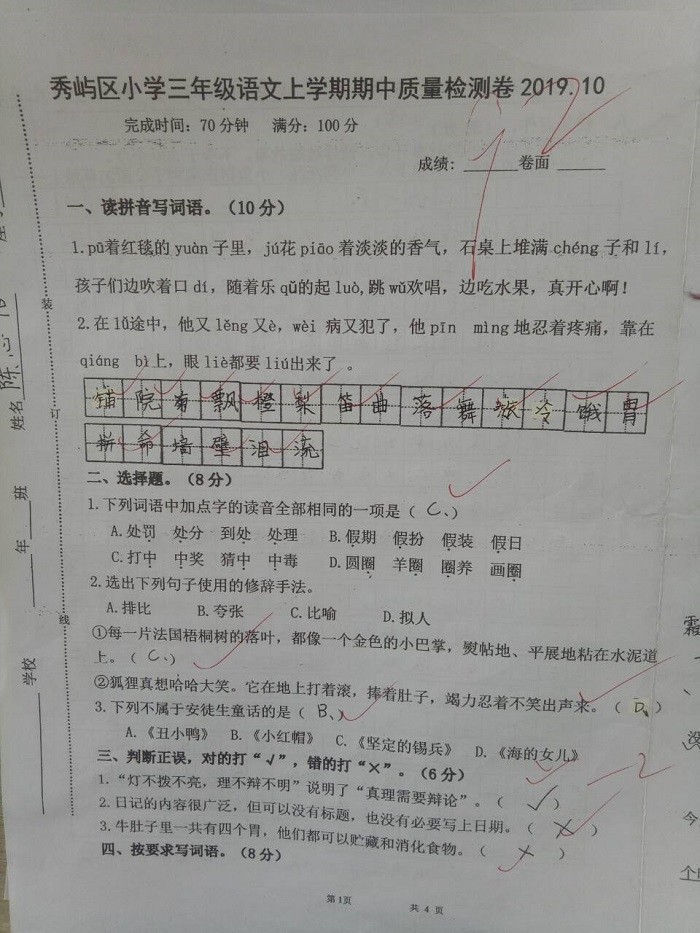 秀屿区小学三年级语文上学期期中质量检测卷2019.10
完成时间：70分钟 满分：100分
92
成绩：______卷面 ______
一、读拼音写词语。（10分）
1.pū着红毯的yuàn子里，jú花piāo着淡淡的香气，石桌上堆满chéng子和lí，
孩子们边吹着口dí，随着乐qǔ的起luò,跳wǔ欢唱，边吃水果，真开心啊！
2.在lǚ途中，他又lěng又è，wèi 病又犯了，他pīn mìng地忍着疼痛，靠在
qiáng bì上，眼lèi都要liú出来了 。
铺院菊飘橙梨笛曲落舞旅冷饿胃
拼命墙壁泪流
二、选择题。（8分）
1.下列词语中加点字的读音全部相同的一项是（ C、）
A.处罚 处分 到处 处理 B.假期 假扮 假装 假日
C.打中 中奖 猜中 中毒 D.圆圈 羊圈 圈养 画圈
2.选出下列句子使用的修辞手法。
A.排比 B.夸张 C.比喻 D.拟人
①每一片法国梧桐树的落叶，都像一个金色的小巴掌，熨帖地、平展地粘在水泥道
上。（ C、）
②狐狸真想哈哈大笑。它在地上打着滚，捧着肚子，竭力忍着不笑出声来。（ D、）
3.下列不属于安徒生童话的是（ B、）
A.《丑小鸭》 B.《小红帽》 C.《坚定的锡兵》 D.《海的女儿》
三、判断正误，对的打“√”，错的打“×”。（6分）
-2
1.“灯不拨不亮，理不辩不明”说明了“真理需要辩论”。（ √ ）
2.日记的内容很广泛，但可以没有标题，也没有必要写上日期。（ × ）
3.牛肚子里一共有四个胃，他们都可以贮藏和消化食物。（ × ）
四、按要求写词语。（8分）
第1页 共 4 页
装
订
线
姓名
年 班
学校
霜
没
今